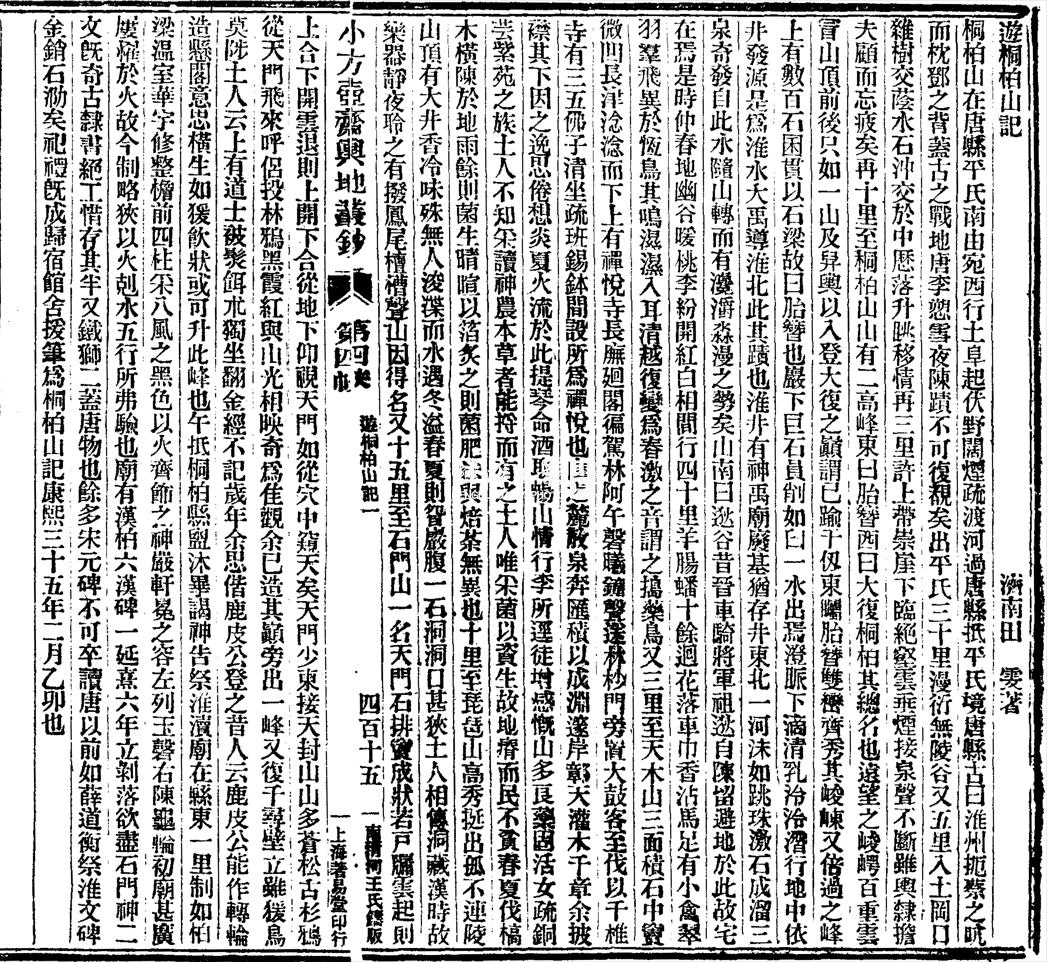 遊桐柏山記 濟南田 雯著
桐柏山在唐縣平氏南由宛西行土阜起伏野闊煙疏渡河過唐縣抵平氏境唐縣古曰淮州扼蔡之吭
而枕鄧之背蓋古之戰地唐李愬雪夜陳蹟不可復覩矣出平氏三十里漫衍無陵谷又五里入土岡口
雜樹交蔭水石沖交於中歷落升眺移情再三里許上帶崇崖下臨絕壑雲垂煙接泉聲不斷雖輿隸擔
夫顧而忘疲矣再十里至桐柏山山有二高峰東曰胎簪西曰大復桐柏其總名也遠望之峻崿百重雲
冒山頂前後只如一山及舁輿以入登大復之巔謂已踰千仭東矚胎簪雙巒齊秀其峻崠又偕過之峰
上有數百石囷貫以石梁故曰胎簪也巖下巨石員削如臼一水出焉澄脈下滴清乳泠泠潛行地中依
井發源是爲淮水大禹導淮北此其蹟也淮井有神禹廟廢基猶存井東北一河沫如跳珠激石成溜三
泉奇發自此水隨山轉而有灣潏淼漫之勢矣山南曰逖谷昔晉車騎將軍祖逖自陳留避地於此故宅
在焉是時仲春地幽谷暖桃李紛開紅白相間行四十里羊腸蟠十餘迴花落車巾香沾馬足有小禽翠
羽羣飛異於恆鳥其鳴濕濕入耳清越復變爲春激之音謂之搗藥鳥又三里至天木山三面積石中竇
微凹長津淰淰而下上有禪悅寺長廡迴閣徧駕林阿午磬曦鐘聲送林杪門旁置大鼓客至伐以千椎
寺有三五佛子清坐疏班錫鉢閒設所爲禪悅也山之麓散泉奔匯積以成淵邃岸彰天灌木千章余披
襟其下因之逸思倦想炎夏火流於此提琴命酒取暢山情行李所逕徒增感慨山多良藥固活女疏銅
芸紫菀之族土人不知采讀神農本草者能捋而有之土人唯采菌以資生故地瘠而民不貧春夏伐槁
木橫陳於地雨餘則菌生晴暄以箔炙之則菌肥法與焙茶無異也十里至琵琶山高秀挺出孤不連陵
山頂有大井香冷味殊無人浚渫而水遇冬溢春夏則眢巖腹一石洞洞口甚狹土人相傳洞藏漢時故
樂器靜夜聆之有撥鳳尾檀槽聲山因得名又十五里至石門山一名天門石排竇成狀若戶牖雲起則
小方壺齋輿地叢鈔 第四帙 遊桐柏山記一 四百十五 南清河王氏鑄版 上海著易堂印行
上合下開雲退則上開下合從地下仰視天門如從穴中窺天矣天門少東接天封山山多蒼松古杉鴉
從天門飛來呼侶投林鴉黑霞紅與山光相映奇爲佳觀余已造其巔旁出一峰又復千尋壁立雖猨鳥
莫陟土人云上有道士被髮餌朮獨坐翻金經不記歲年余思偕鹿皮公登之昔人云鹿皮公能作轉輪
造懸閣意思橫生如猨飲狀或可升此峰也午抵桐柏縣盥沐畢謁神告祭淮瀆廟在縣東一里制如柏
梁溫室華宇修整檐前四柱采八風之黑色以火齊飾之神嚴軒冕之容左列玉磬右陳龜輪初廟甚廣
屢燬於火故今制略狹以火剋水五行所弗驗也廟有漢柏六漢碑一延熹六年立剝落欲盡石門神二
文旣奇古隸書絕工惜存其半又鐵獅二蓋唐物也餘多宋元碑不可卒讀唐以前如薛道衡祭淮文碑
金銷石泐矣祀禮旣成歸宿館舍援筆爲桐柏山記康熙三十五年二月乙卯也